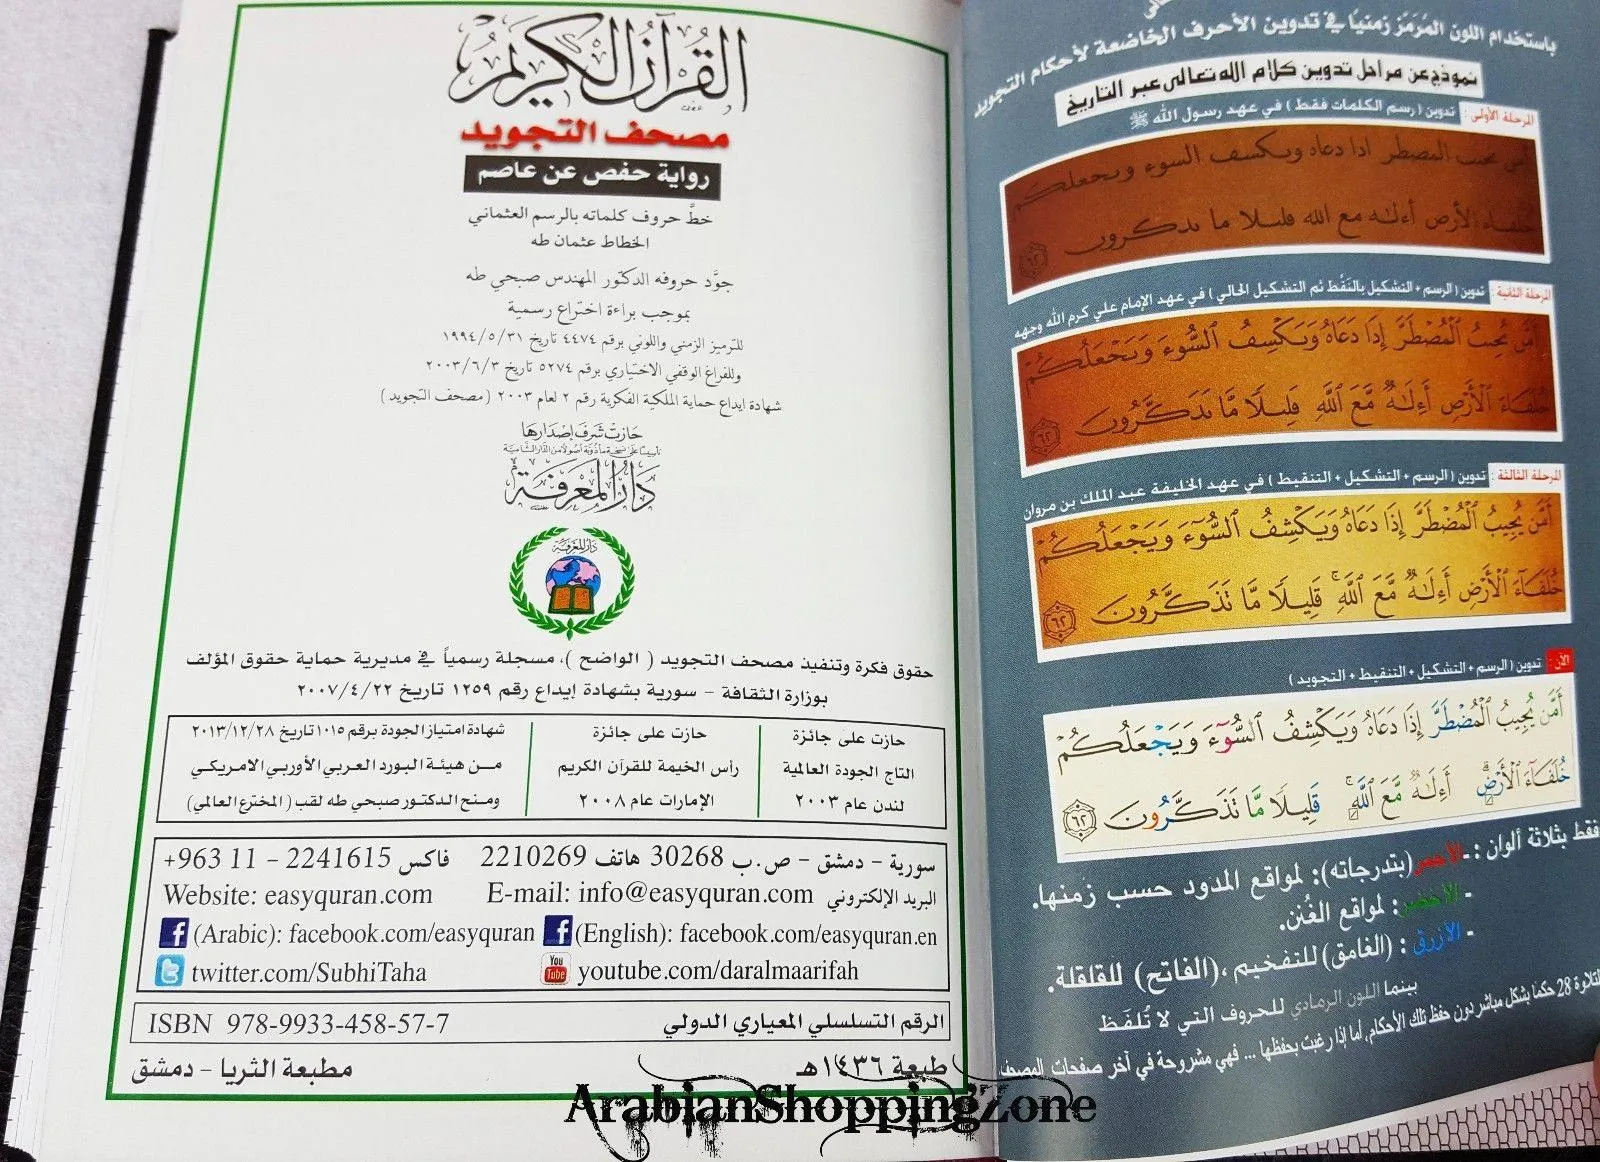 القرآن الكريم
مصحف التجويد
رواية حفص عن عاصم
خطَّ حروف كلماته بالرسم العثماني
الخطاط عثمان طه
جوَّد حروفه الدكتور المهندس صبحي طه
بموجب براءة اختراع رسمية
للترميز الزمني واللوني برقم ٤٤٧٤ تاريخ ١٩٩٤/٥/٣١
وللفراغ الوقفي الاختياري برقم ٥٢٧٤ تاريخ ٢٠٠٣/٦/٣
شهادة ايداع حماية الملكية الفكرية رقم ٢ لعام ٢٠٠٣ (مصحف التجويد)
حازت شرف إصدارها
دار المعرفة
دار المعرفة
حقوق فكرة وتنفيذ مصحف التجويد ( الواضح )، مسجلة رسمياً في مديرية حماية حقوق المؤلف
بوزارة الثقافة - سورية بشهادة إيداع رقم ١٢٥٩ تاريخ ٢٠٠٧/٤/٢٢
حازت على جائزة
التاج الجودة العالمية
لندن عام ٢٠٠٣
حازت على جائزة
رأس الخيمة للقرآن الكريم
الإمارات عام ٢٠٠٨
شهادة امتياز الجودة برقم ١٠١٥ تاريخ ٢٠١٣/١٢/٢٨
من هيئة البورد العربي الأوربي الامريكي
ومنح الدكتور صبحي طه لقب (المخترع العالمي)
سورية - دمشق - ص.ب 30268 هاتف 2210269 فاكس 2241615 - 11 963+
البريد الإلكتروني E-mail: info@easyquran.com Website: easyquran.com
(Arabic): facebook.com/easyquran (English): facebook.com/easyquran.en
twitter.com/SubhiTaha You Tube youtube.com/daralmaarifah
الرقم التسلسلي المعياري الدولي ISBN 978-9933-458-57-7
طبعة ١٤٣٦هـ مطبعة الثريا - دمشق
باستخدام اللون المُرَمَّز زمنياً في تدوين الأحرف الخاضعة لأحكام التجويد
نموذج عن مراحل تدوين كلام الله تعالى عبر التاريخ
المرحلة الأولى: تدوين (رسم الكلمات فقط) في عهد رسول الله ﷺ
المرحلة الثانية: تدوين (الرسم + التشكيل بالنَقْط ثم التشكيل الحالي) في عهد الإمام علي كرم الله وجهه
المرحلة الثالثة: تدوين (الرسم + التشكيل + التنقيط) في عهد الخليفة عبد الملك بن مروان
أَمَّن يُجِيبُ ٱلْمُضْطَرَّ إِذَا دَعَاهُ وَيَكْشِفُ ٱلسُّوٓءَ وَيَجْعَلُكُمْ
خُلَفَآءَ ٱلْأَرْضِ أَءِلَٰهٌ مَّعَ ٱللَّهِ ۚ قَلِيلًا مَّا تَذَكَّرُونَ ٦٢
الآن: تدوين (الرسم + التشكيل + التنقيط + التجويد)
أَمَّن يُجِيبُ ٱلْمُضْطَرَّ إِذَا دَعَاهُ وَيَكْشِفُ ٱلسُّوٓءَ وَيَجْعَلُكُمْ
خُلَفَآءَ ٱلْأَرْضِ أَءِلَٰهٌ مَّعَ ٱللَّهِ ۚ قَلِيلًا مَّا تَذَكَّرُونَ ٦٢
فقط بثلاثة ألوان: - الأحمر (بتدرجاته): لمواقع المدود حسب زمنها.
- الأخضر: لمواقع الغُنن.
- الأزرق: (الغامق) للتفخيم، (الفاتح) للقلقلة.
بينما اللون الرمادي للحروف التي لا تُلفَظ
التلاوة 28 حكماً بشكل مباشر دون حفظ تلك الأحكام, أما إذا رغبت بحفظها ... فهي مشروحة في آخر صفحات المصحف
ArabianShoppingZone